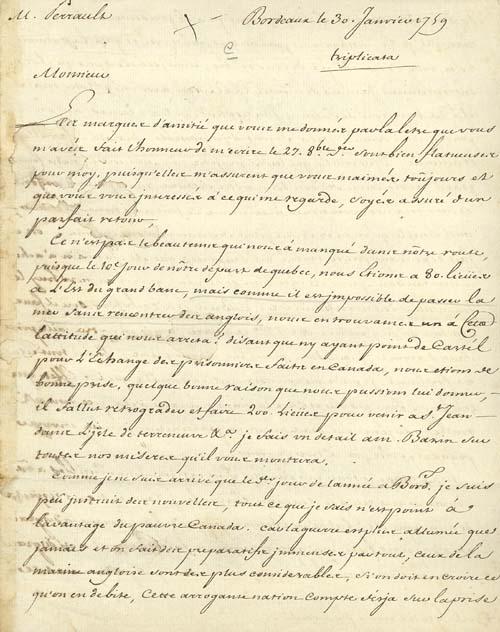 M. Perrault Bordeaux le 30. Janvier 1759
triplicata
Monsieur
Les marques d'amitié que vous me donnés par la letre que vous
m'avés fait l'honneur de m'ecrire le 27. 8.bre der sont bien flateuses
pour moy, puisqu'elles m'assurent que vous m'aimés toûjours et
que vous vous interessés à ce qui me regarde, soyés assuré d'un
parfait retour,
Ce n'est pas le beau tems qui nous à manqué dans nôtre route,
puisque le 10.e Jour de nôtre depart de quebec, nous étions a 80. lieües
a L'Est du grand banc, mais comme il est impossible de passer la
mer sans rencontrer des anglois, nous en trouvames un à
latitude qui nous arreta: disant que n'y ayant point de Cartel
pour L'Echange des prisonniers faits en Canada, nous etions de
bonne prise, quelque bonne raison que nous pussions lui donner,
il fallut retrograder et faire 200. Lieües pour venir a S.t Jean
dans L'isle de terreneuve &.a je fais un detail a m. Bazin sur
toutes nos miseres qu'il vous montrera.
Comme je ne suis arrivé que le der jour de l'année a Bord.x je suis
peu instruit des nouvelles, tout ce que je sais n'est point a
l'avantage du pauvre Canada. car la guerre est plus allumée que
jamais et on fait des preparatifs immenses partout, ceux de la
marine angloise sont des plus considerables, si on doit en croire ce
qu'on en debite, Cette arrogante nation compte deja sur la prise